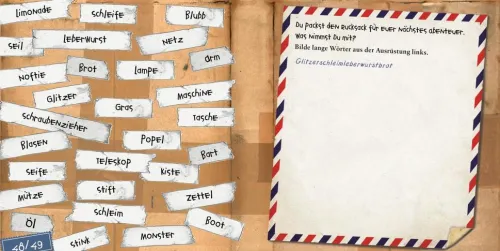 Limonade
Schleife
Blubb
Seil
Leberwurst
Netz
Arm
Noftie
Brot
Lampe
Glitzer
Gras
Maschine
Tasche
Schraubenzieher
Blasen
Popel
Bart
Seife
Teleskop
Kiste
Mütze
Stift
Zettel
Schleim
Boot
Öl
Stink
Monster
48/49
Du packst den Rucksack für euer nächstes Abenteuer.
Was nimmst Du mit?
Bilde lange Wörter aus der Ausrüstung links.
Glitzerschleimleberwurstbrot